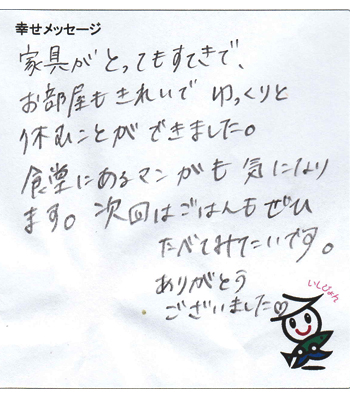 幸せメッセージ
家具がとってもすてきで、
お部屋もきれいで ゆっくりと
休むことができました。
食堂にあるマンガも 気になり
ます。次回はごはんもぜひ
たべてみてたいです。
ありがとう
ございました♡
いしじょん